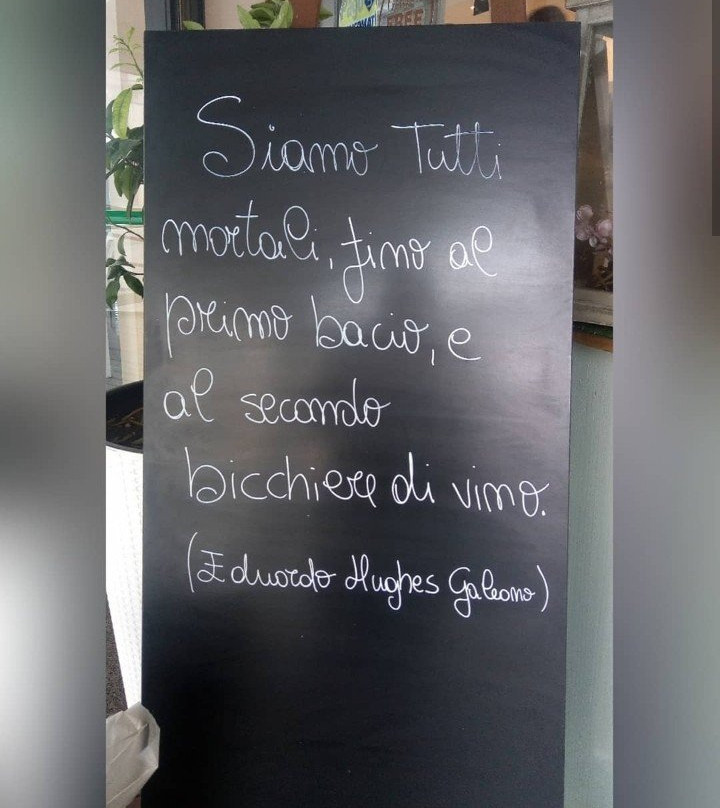 FREE
Siamo Tutti
mortali, fino al
primo bacio, e
al secondo
bicchiere di vino.
(Eduardo Hughes Galeano)